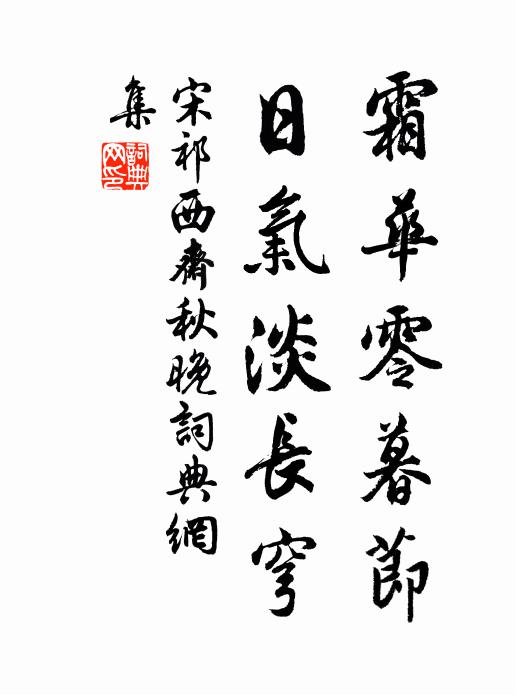 霜華零暮節
日氣淡長穹
宋祁西齋秋晚詞典網
集
詞典
网印